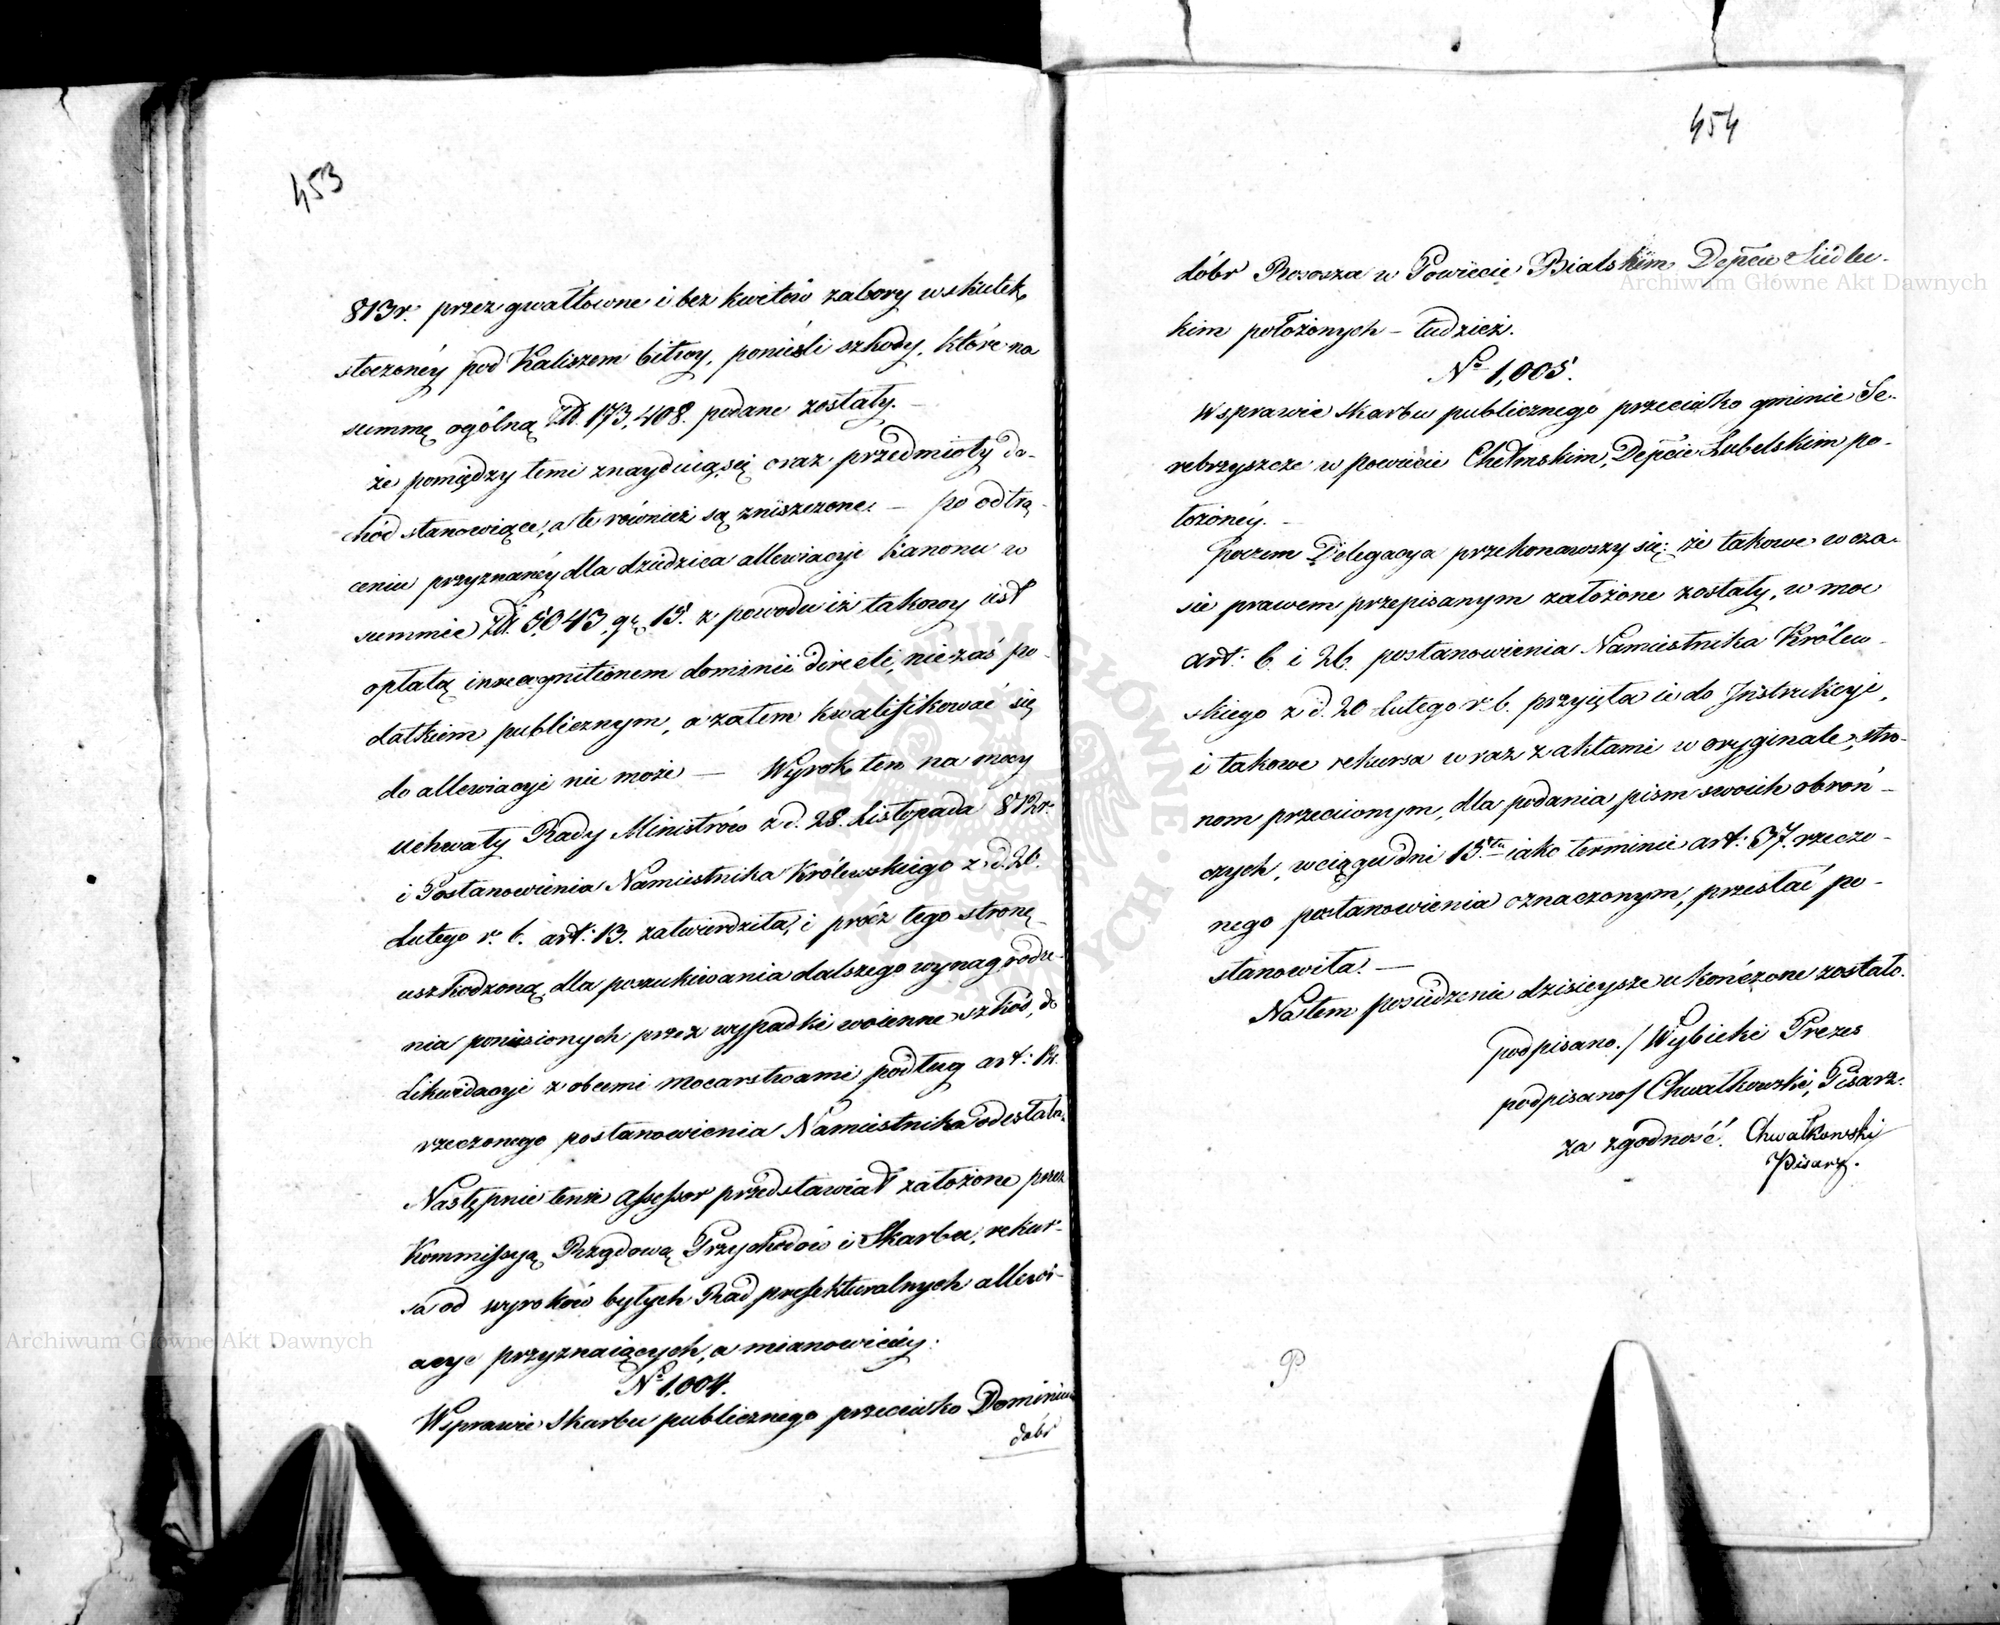 453
813r. przez gwałtowne i bez kwitów zabory wskutek
stoczonéy pod Kaliszem bitwy, ponieśli szkody, które na
summę ogólną Zł. 173,408. podane zostały. —
że pomiędzy temi znayduią się oraz przedmioty do-
chód stanowiące, a te również są zniszczone. — po odtrą-
ceniu przyznanéy dla dziedzica allewiacyi Kanonu w
summie Zł. 5,043, gr. 15. z powodu iż takowy iest
opłatą in recognitionem dominii directi, nie zaś po-
datkiem publicznym, a zatem kwalifikować się
do allewiacyi nie może — Wyrok ten na mocy
uchwały Rady Ministrów z d. 28. Listopada 812r.
i Postanowienia Namiestnika Królewskiego z d. 20.
Lutego r. b. art: 13. zatwierdziła, i prócz tego stronę
uszkodzoną, dla poszukiwania dalszego wynagrodze-
nia poniesionych przez wypadki woienne szkód, do
Likwidacyi z obcemi mocarstwami podług art: 14.
rzeczonego postanowienia Namiestnika odesłała.
Następnie tenże Assessor przedstawiał założone przez
Kommissyą Rządową Przychodów i Skarbu, rekur-
sa od wyroków byłych Rad prefekturalnych allewi-
acye przyznaiących, a mianowicie:
No 1,004.
W sprawie Skarbu publicznego przeciwko Dominium
dóbr
454
dóbr Rososza w Powiecie Bialskim Depcie Siedlec-
kim położonych — tudzież.
No 1,005.
W sprawie Skarbu publicznego przeciwko gminie Se-
rebrzyszcze w powiecie Chełmskim, Depcie Lubelskim po-
łożonéy. —
poczem Delegacya przekonawszy się: że takowe w cza-
sie prawem przepisanym założone zostały, w moc
art: 6. i 26. postanowienia Namiestnika Królew-
skiego z d. 20 Lutego r. b. przyięła ie do Instrukcyi,
i takowe rekursa wraz z aktami w oryginale, stro-
nom przeciwnym, dla podania pism swoich obroń-
czych, w ciągu dni 15tu iako terminie art: 37. rzeczo-
nego postanowienia oznaczonym, przesłać po-
stanowiła. —
Na tem posiedzenie dzisieysze ukończone zostało.
podpisano./ Wybicki Prezes
podpisano/ Chwałkowski, Pisarz.
za zgodność. Chwałkowski
Pisarz.
P
Archiwum Główne Akt Dawnych
Archiwum Główne Akt Dawnych